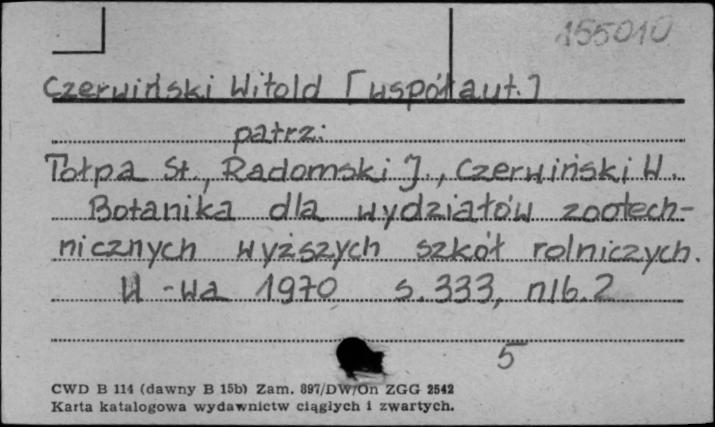 155010
Czerwiński Witold [współaut.]
patrz:
Tołpa St., Radomski J., Czerwiński W.
Botanika dla wydziałów zootech-
nicznych wyższych szkół rolniczych.
W-wa 1970 s. 333, nlb. 2
5
CWD B 114 (dawny B 15b) Zam. 897/DW/On ZGG 2542
Karta katalogowa wydawnictw ciągłych i zwartych.